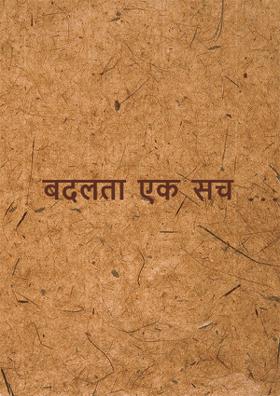 बदलता एक सच ....